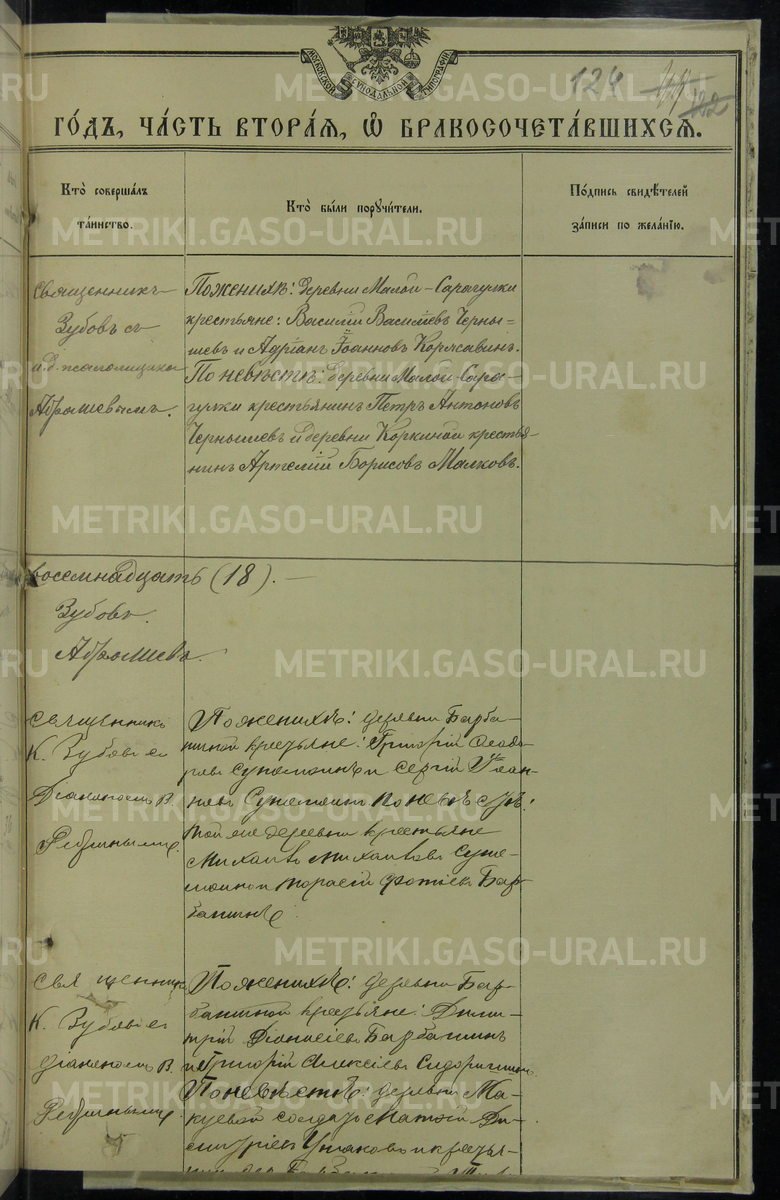 МОСКОВСКОЙ СѴНОДАЛЬНОЙ ТИПОГРАФІИ
124
ГО́ДЪ, ЧА́СТЬ ВТОРА́Ѧ, Ѿ БРАКОСОЧЕТА́ВШИХСѦ.
Кто̀ соверша́лъ
та́инство.
Кто̀ бы́ли порꙋчи́тели.
По́дпись свидѣ́телей
за́писи по жела́нїю.
Священникъ
Зубовъ съ
и.д. псаломщика
Абрашевымъ.
По женихѣ: деревни Малой-Сарагулки
крестьяне: Василій Васильевъ Черны-
шевъ и Адріанъ Іоанновъ Корлсавинъ.
По невѣстѣ: деревни Малой Сара-
гулки крестьянинъ Петръ Антоновъ
Чернышевъ и деревни Коркиной крестья-
нинъ Артемій Борисовъ Малковъ.
восемнадцать (18). —
Зубовъ.
Абрашевъ.
священникъ
К. Зубовъ съ
Діакономъ В.
По женихѣ: деревни Барба-
шиной крестьяне: Григорій Ѳеодо-
ровъ и Сергій Іоан-
новъ по невѣстѣ:
той же деревни крестьяне
Михаилъ Михаиловъ
Фотіевъ Бар-
башинъ
священникъ
К. Зубовъ съ
діакономъ В.
По женихѣ: деревни Бар-
башиной крестьяне: Дими-
трій Діонисіевъ Барбашинъ
и Григорій Алексіевъ
По невѣстѣ: деревни Ма-
куевой солдатъ Матѳій Ди-
митріевъ Ушаковъ и крестья-
METRIKI.GASO-URAL.RU